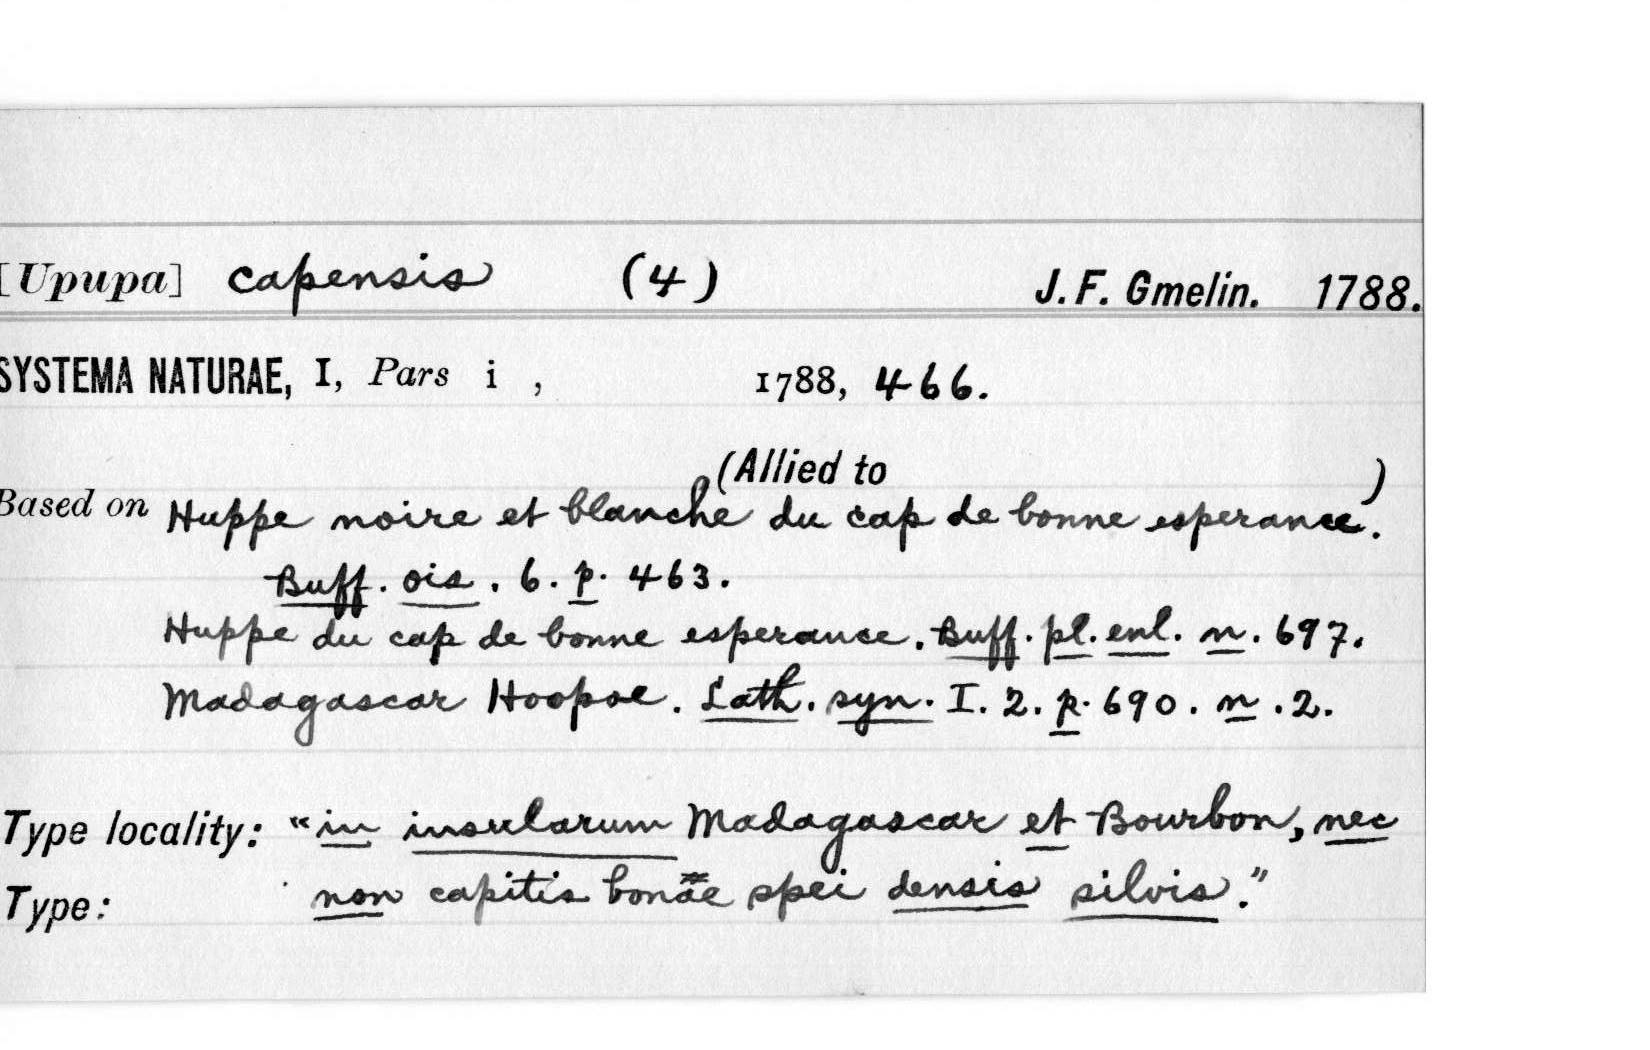 [Upupa] capensis (4) J. F. Gmelin. 1788.
SYSTEMA NATURAE, I, Pars i , 1788, 466.
(Allied to )
Based on Huppe noire et blanche du cap de bonne esperance.
Buff. ois. 6. p. 463.
Huppe du cap de bonne esperance. Buff. pl. enl. n. 697.
Madagascar Hoopoe. Lath. syn. I. 2. p. 690. n. 2.
Type locality: "in insularum Madagascar et Bourbon, nec
Type: non capitis bonae spei densis silvis."